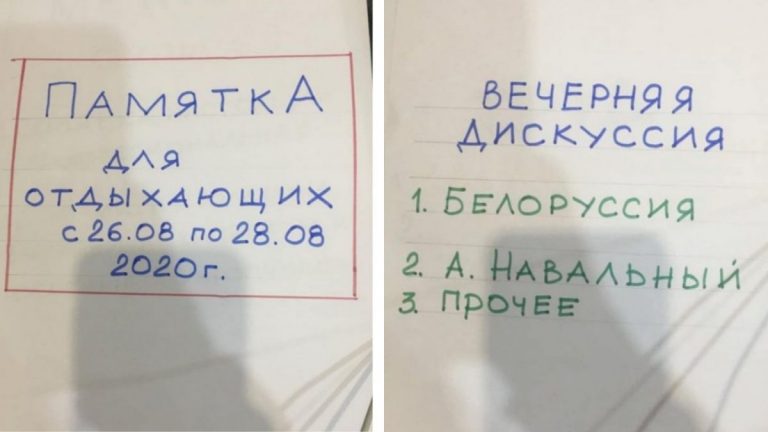 ПАМЯТКА
ДЛЯ
ОТДЫХАЮЩИХ
с 26.08 по 28.08
2020г.
ВЕЧЕРНЯЯ
ДИСКУССИЯ
1. БЕЛОРУССИЯ
2. А. НАВАЛЬНЫЙ
3. ПРОЧЕЕ